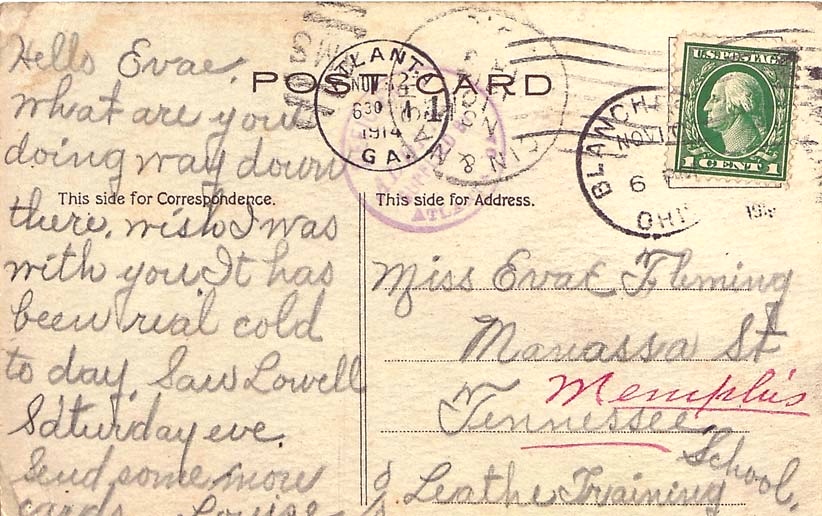 Hello Evae,
What are you
doing way down
there, wish I was
with you. It has
been real cold
to day. Saw Lowell
Saturday eve.
Send some more
cards Louise
POST CARD
This side for Correspondence.
This side for Address.
ATLANTA
NOV
630
1914
GA.
1
ATLA
CIN &
BLANCH
NOV
6 P
OHI
191
U.S. POSTAGE
1 CENT 1
Miss Evae Fleming
Manassa St
Memphis
Tennessee,
School.
Leathe Training